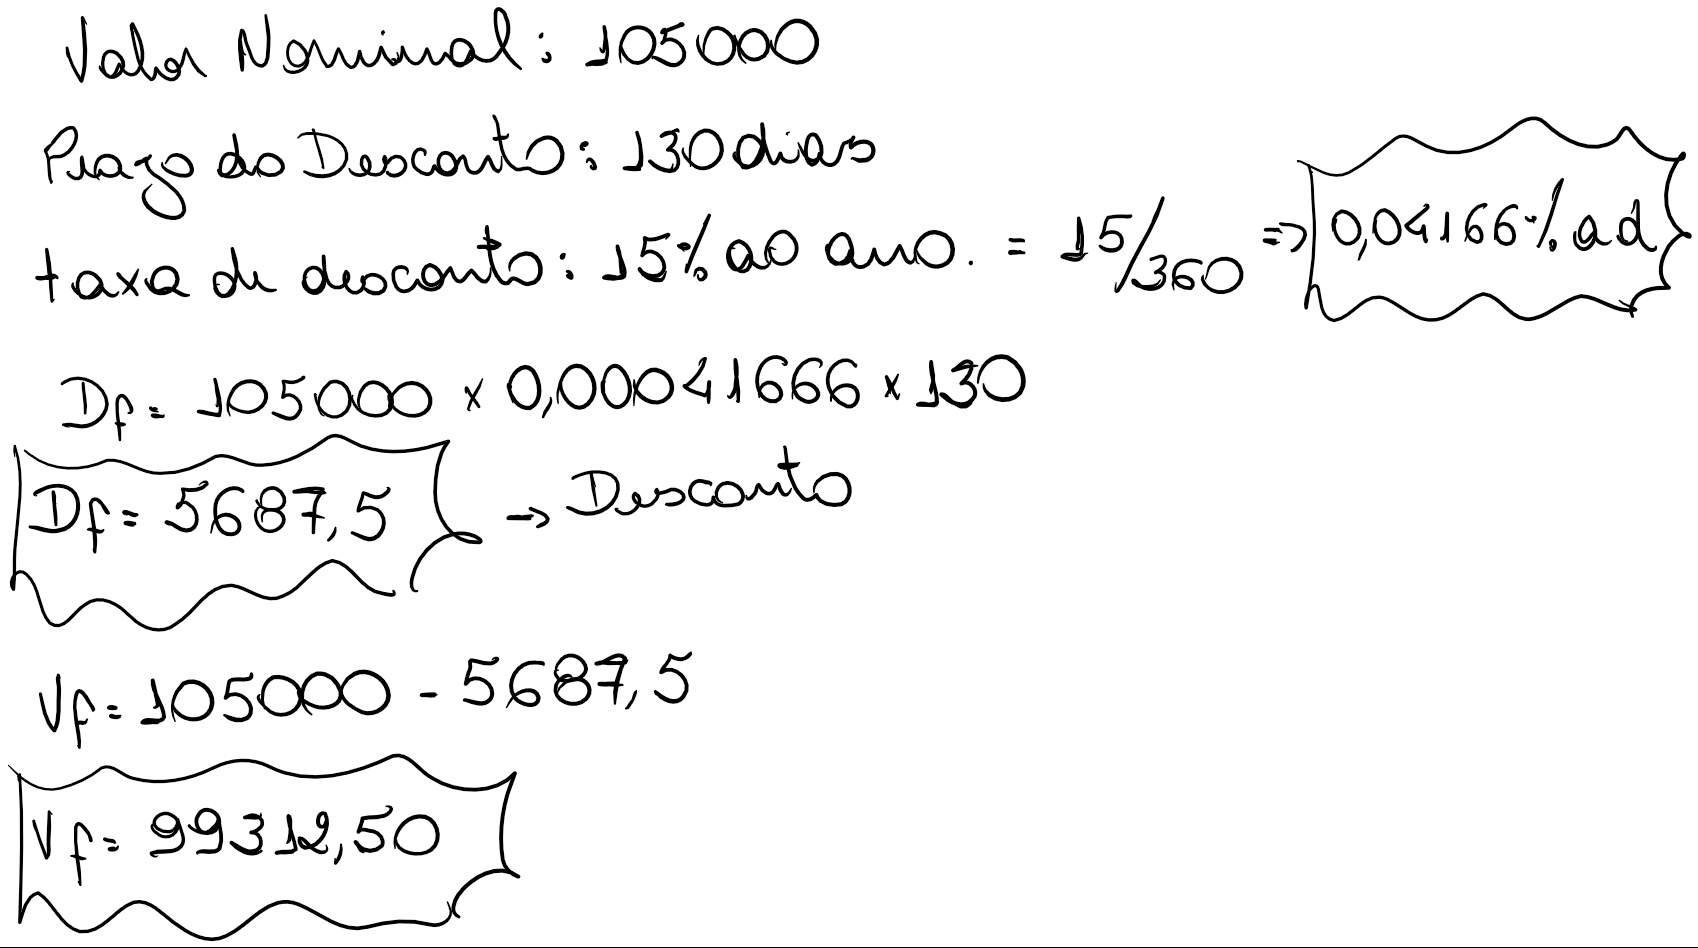 Valor Nominal: 105000
Prazo do Desconto: 130 dias
taxa de desconto: 15% ao ano. = 15/360 => 0,04166% ad
Df = 105000 x 0,00041666 x 130
Df = 5687,5 -> Desconto
Vf = 105000 - 5687,5
Vf = 99312,50